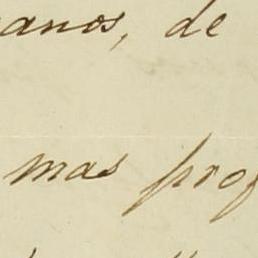 anos, de
mas prof